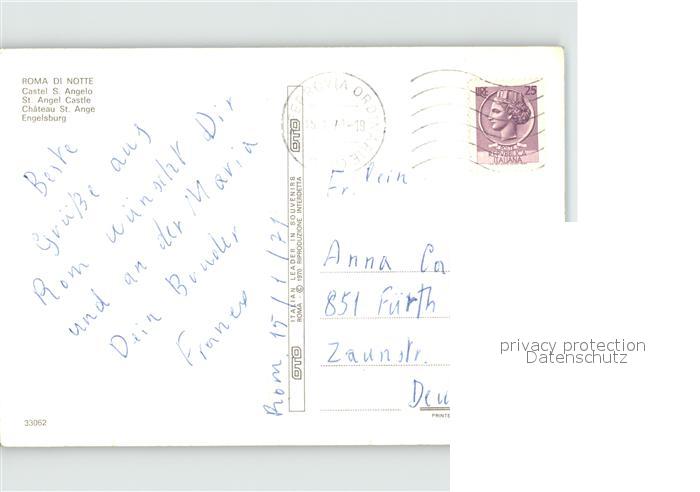 ROMA DI NOTTE
Castel S. Angelo
St. Angel Castle
Château St. Ange
Engelsburg
Beste
Grüße aus
Rom wünscht Dir
und an der Maria
Dein Bruder
Franco
Rom, 15/1/71
OTO
ITALIAN LEADER IN SOUVENIRS
ROMA - © 1970 RIPRODUZIONE INTERDETTA
OTO
LIRE 25
POSTE
REPUBBLICA
ITALIANA
Frl.
Anna Ca
851 Fürth
Zaunstr.
Deu
PRINTE
33062
privacy protection
Datenschutz